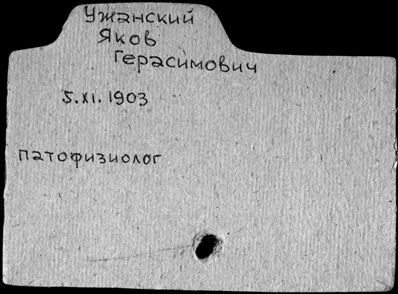 Ужанский
Яков
Герасимович
5.XI.1903
патофизиолог